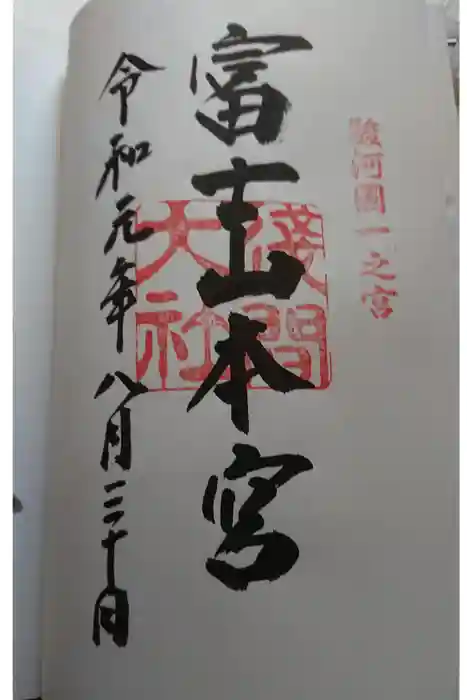 駿河國一之宮
富士山本宮
淺間大社
令和元年八月三十日